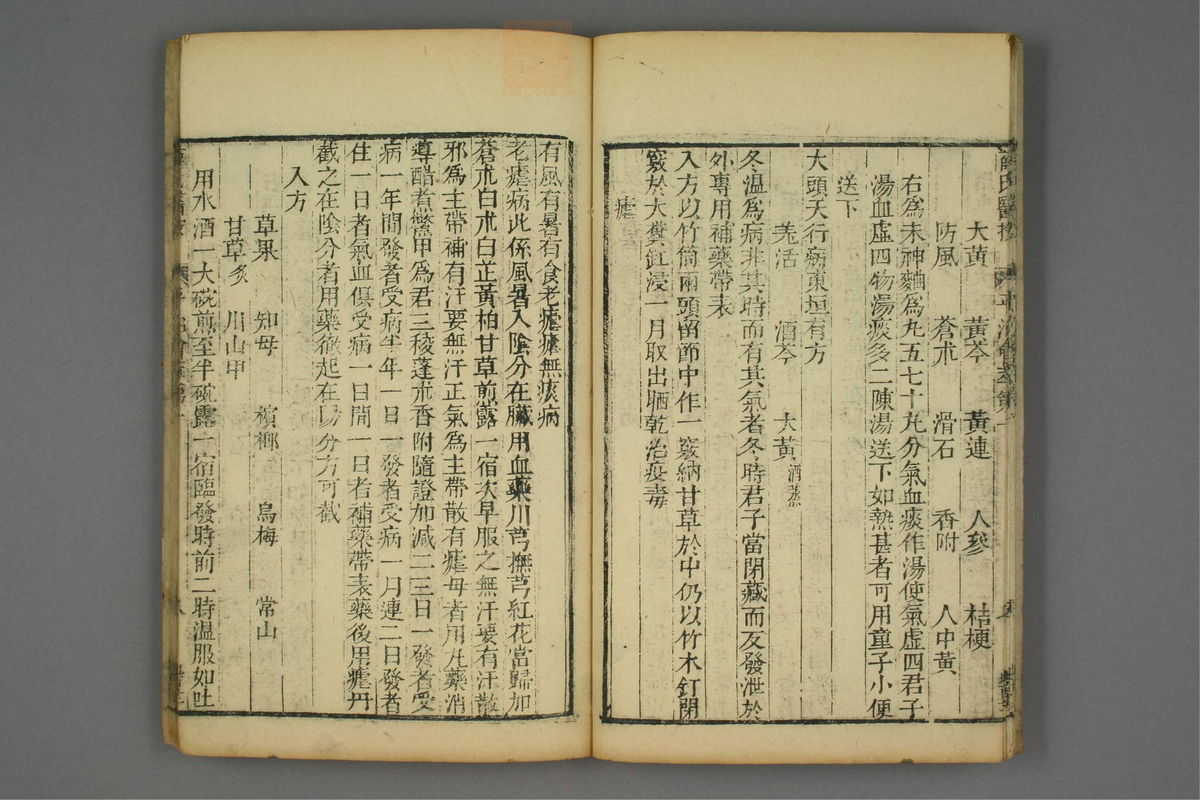 大黃 黃芩 黃連 人參 桔梗
防風 蒼朮 滑石 香附 人中黃
右爲末神麯爲丸五七十丸分氣血痰作湯使氣虛四君子
湯血虛四物湯痰多二陳湯送下如熱甚者可用童子小便
送下
大頭天行病東垣有方
羌活 酒芩 大黃酒蒸
冬温爲病非其時而有其氣者冬時君子當閉藏而反發泄於
外專用補藥帶表
入方以竹筒兩頭留節中作一竅納甘草於中仍以竹木釘閉
竅於大糞缸浸一月取出晒乾治疫毒
瘧
有風有暑有食老瘧瘧無痰病
老瘧病此係風暑入陰分在臟用血藥川芎撫芎紅花當歸加
蒼朮白朮白芷黃柏甘草煎露一宿次早服之無汗要有汗散
邪爲主帶補有汗要無汗正氣爲主帶散有瘧母者用丸藥消
導醋煮鱉甲爲君三稜蓬朮香附隨證加減二三日一發者受
病一年間發者受病半年一日一發者受病一月連二日發者
住一日者氣血俱受病一日間一日者補藥帶表藥後用瘧丹
截之在陰分者用藥徹起在陽分方可截
入方
草果 知母 檳榔 烏梅 常山
甘草炙 川山甲
用水酒一大碗煎至半碗露一宿臨發時前二時温服如吐